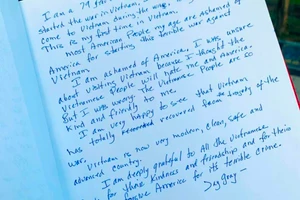 I am a 79 y
started the war in Vietnam. I
come to Vietnam during the
This is my first time in Vietnam.
most American People my age are ashamed of
America for starting this terrible war against
Vietnam.
I am ashamed of America. I was unsure
about visiting Vietnam because I thought the
Vietnamese People will hate me and America.
But I was wrong. The Vietnamese People are so
kind and friendly to me.
I am very happy to see that Vietnam
has totally recovered from the tragedy of the
war.
Vietnam is now very modern, clean, safe and
advanced country.
I am deeply grateful to all the Vietnamese
for their kindness and friendship and for their
America for its terrible crime.